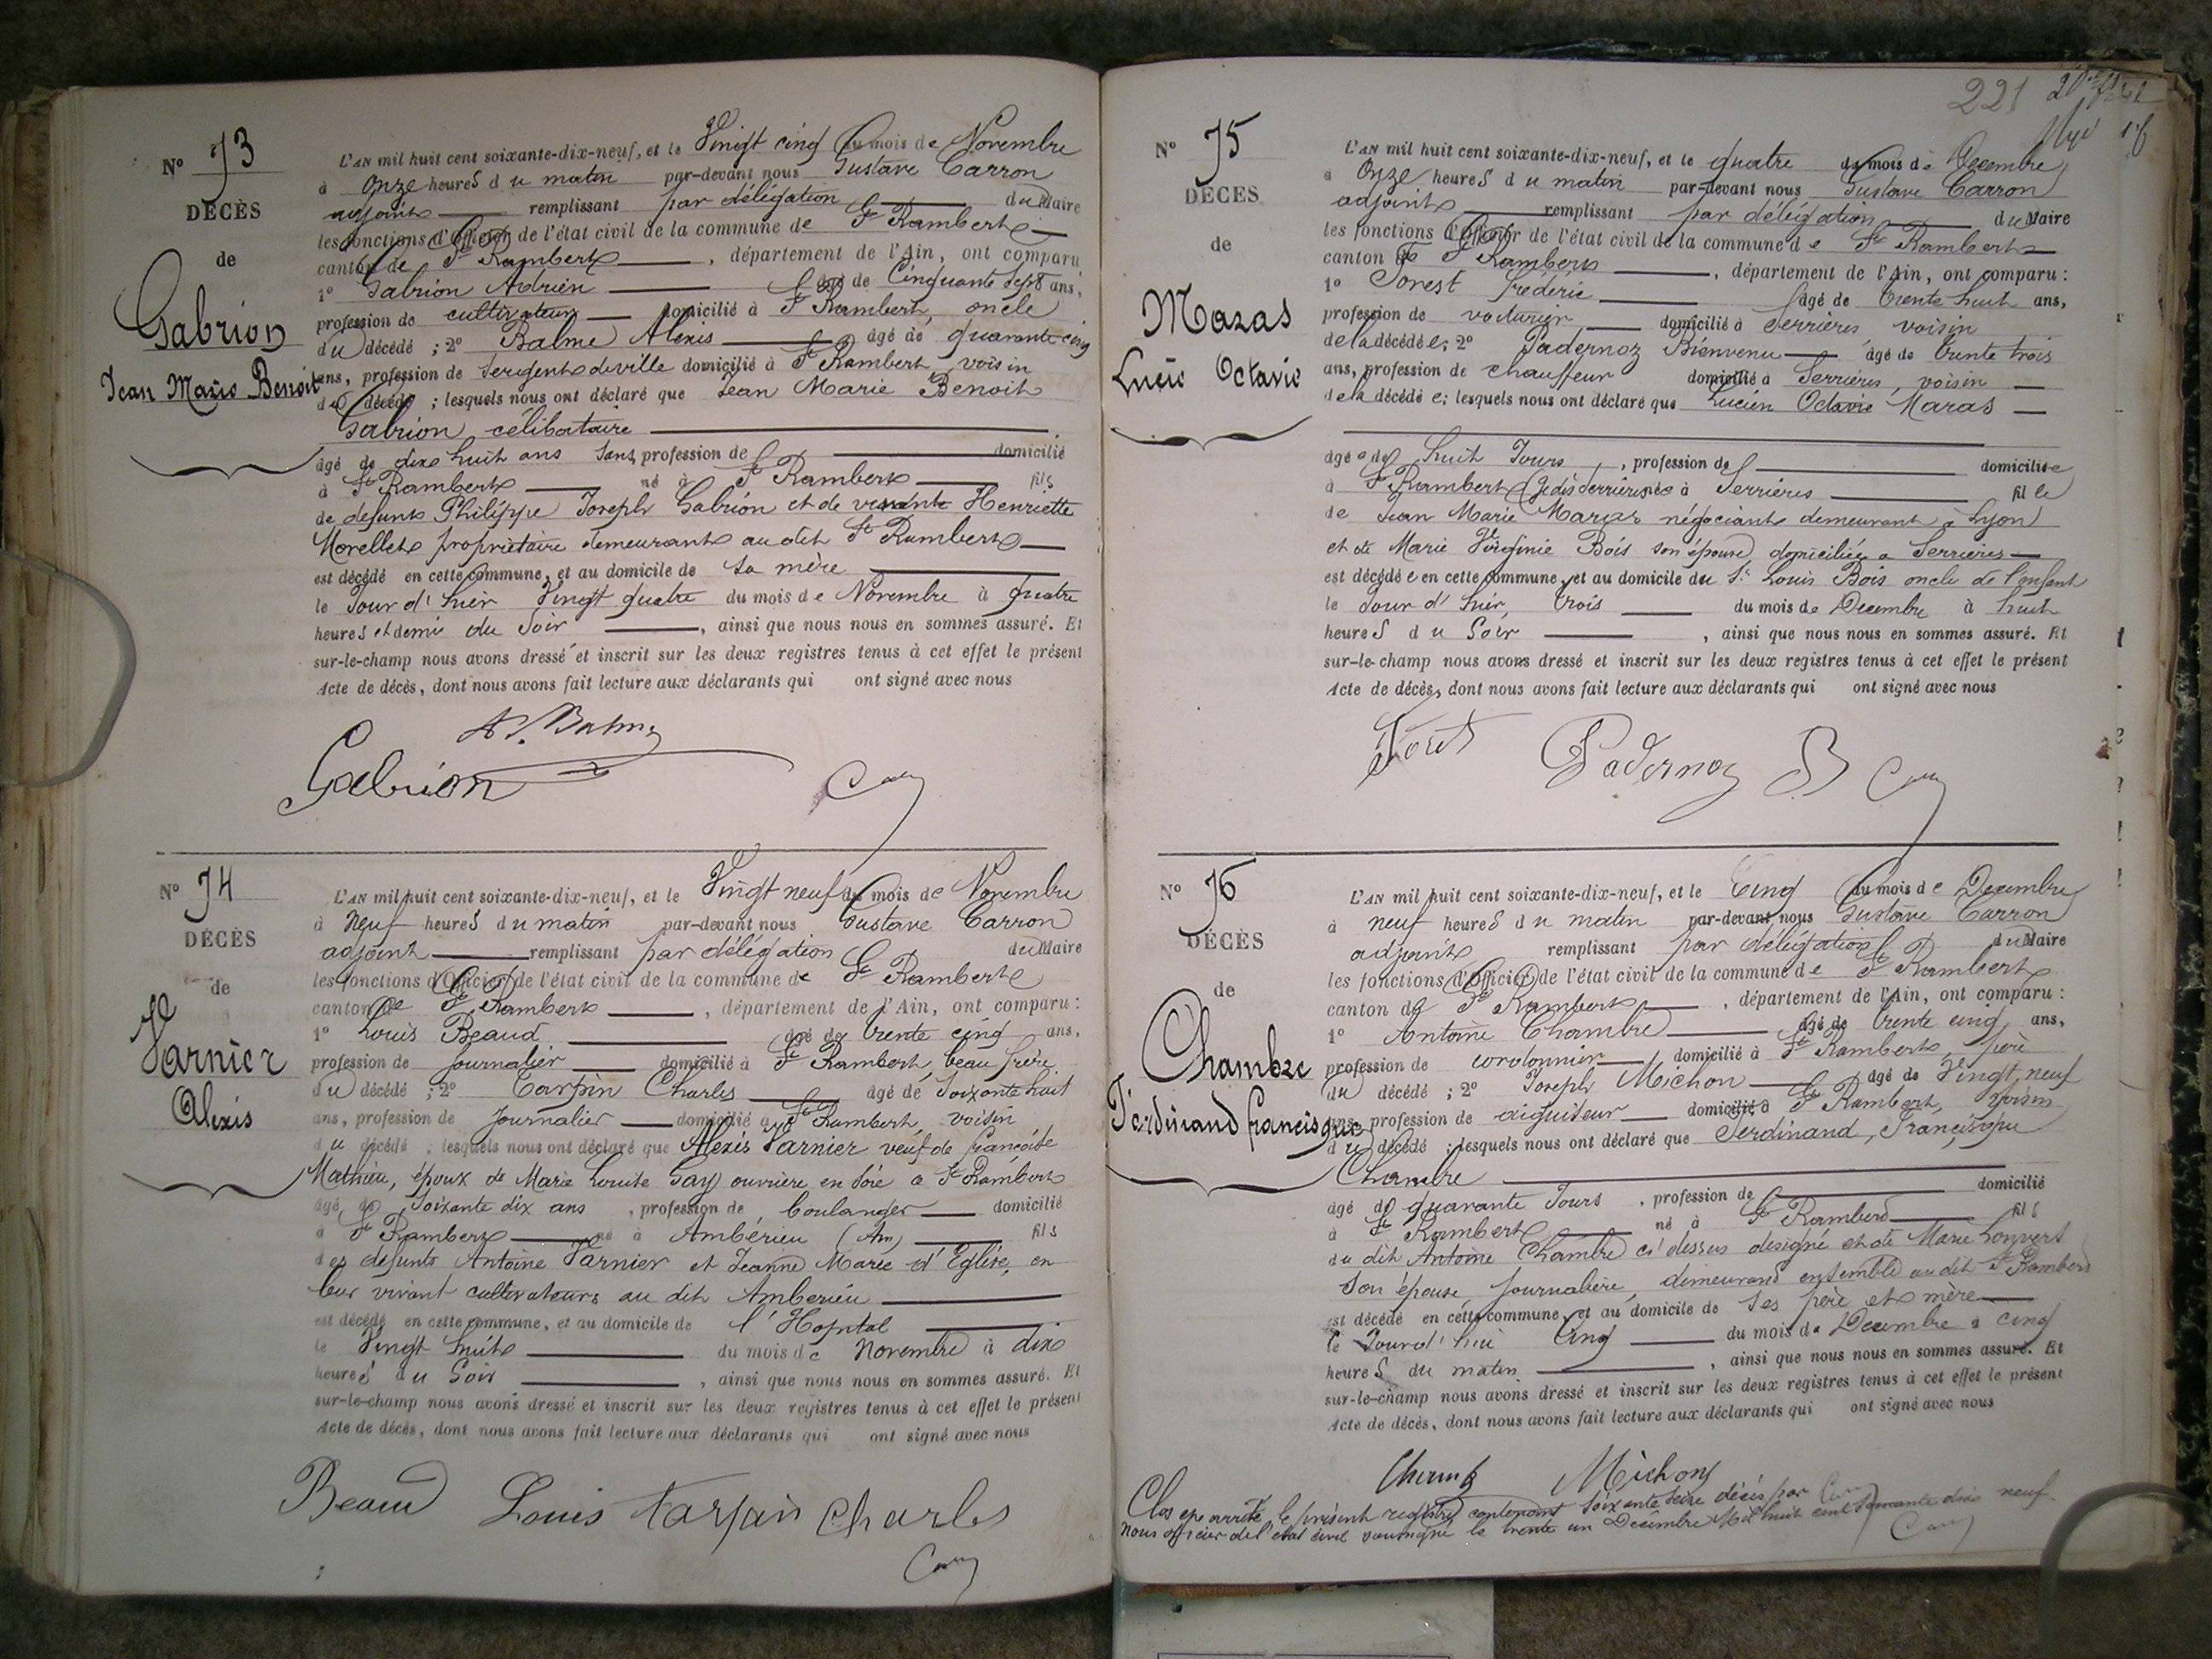 N° 73
DÉCÈS
de
Gabrion
Jean Marie Benoit
L'AN mil huit cent soixante-dix-neuf, et le Vingt cinq du mois de Novembre
à Onze heures du matin par-devant nous Gustave Carron
adjoint remplissant par délégation du Maire
les fonctions d'Officier de l'état civil de la commune de St Rambert
canton de St Rambert, département de l'Ain, ont comparu
1° Gabrion Adrien âgé de Cinquante sept ans,
profession de cultivateur domicilié à St Rambert, oncle
du décédé ; 2° Balme Alexis âgé de quarante cinq
ans, profession de Sergent de ville domicilié à St Rambert, voisin
du décédé ; lesquels nous ont déclaré que Jean Marie Benoit
Gabrion, célibataire
âgé de dix huit ans sans profession de domicilié
à St Rambert né à St Rambert fils
de defunt Philippe Joseph Gabrion et de vivante Henriette
Morellet propriétaire demeurant au dit St Rambert
est décédé en cette commune, et au domicile de sa mère
le Jour d'hier Vingt quatre du mois de Novembre à quatre
heures et demie du Soir, ainsi que nous nous en sommes assuré. Et
sur-le-champ nous avons dressé et inscrit sur les deux registres tenus à cet effet le présent
Acte de décès, dont nous avons fait lecture aux déclarants qui ont signé avec nous
Gabrion
N° 74
DÉCÈS
de
Varnier
Alexis
L'AN mil huit cent soixante-dix-neuf, et le Vingt neuf du mois de Novembre
à Neuf heures du matin par-devant nous Gustave Carron
adjoint remplissant par délégation du Maire
les fonctions d'Officier de l'état civil de la commune de St Rambert
canton de St Rambert, département de l'Ain, ont comparu :
1° Louis Beaud âgé de trente cinq ans,
profession de Journalier domicilié à St Rambert, beau frère
du décédé ; 2° Tarpin Charles âgé de Soixante huit
ans, profession de Journalier domicilié à St Rambert, voisin
du décédé ; lesquels nous ont déclaré que Alexis Varnier veuf de françoise
Mathieu, époux de Marie Louise Gay ouvrière en soie à St Rambert
âgé de Soixante dix ans, profession de boulanger domicilié
à St Rambert né à Ambérieu (Ain) fils
des défunts Antoine Varnier et Jeanne Marie d'Eglise, en
leur vivant cultivateurs au dit Amberieu
est décédé en cette commune, et au domicile de l'Hopital
le Vingt huit du mois de Novembre à dix
heures du Soir, ainsi que nous nous en sommes assuré. Et
sur-le-champ nous avons dressé et inscrit sur les deux registres tenus à cet effet le présent
Acte de décès, dont nous avons fait lecture aux déclarants qui ont signé avec nous
Beaud Louis tarpin Charles
221
N° 75
DÉCÈS
de
Mazas
Lucie Octavie
L'AN mil huit cent soixante-dix-neuf, et le quatre du mois de Decembre
à Onze heures du matin par-devant nous Gustave Carron
adjoint remplissant par délégation du Maire
les fonctions d'Officier de l'état civil de la commune de St Rambert
canton de St Rambert, département de l'Ain, ont comparu :
1° Forest frédéric âgé de trente huit ans,
profession de voiturier domicilié à Serrières voisin
de la décédée; 2° Padernoz Bienvenu âgé de trente trois
ans, profession de chauffeur domicilié à Serrières, voisin
de la décédée; lesquels nous ont déclaré que Lucien Octavie Maras
âgée de huit Jours, profession de domiciliée
à St Rambert née à Serrières fille
de Jean Marie Maras négociant demeurant à Lyon
et de Marie Virginie Bois son épouse domiciliée à Serrières
est décédée en cette commune, et au domicile du Sr Louis Bois oncle de l'enfant
le Jour d'hier, trois du mois de Decembre à huit
heures du Soir, ainsi que nous nous en sommes assuré. Et
sur-le-champ nous avons dressé et inscrit sur les deux registres tenus à cet effet le présent
Acte de décès, dont nous avons fait lecture aux déclarants qui ont signé avec nous
Padernoz
N° 76
DÉCÈS
de
Chambre
Ferdinand francisque
L'AN mil huit cent soixante-dix-neuf, et le Cinq du mois de Decembre
à neuf heures du matin par-devant nous Gustave Carron
adjoint remplissant par délégation du Maire
les fonctions d'Officier de l'état civil de la commune de St Rambert
canton de St Rambert, département de l'Ain, ont comparu :
1° Antoine Chambre âgé de trente cinq ans,
profession de cordonnier domicilié à St Rambert, père
du décédé ; 2° Joseph Michon âgé de Vingt neuf
ans, profession de aiguiseur domicilié à St Rambert, voisin
du décédé ; lesquels nous ont déclaré que Ferdinand, Francisque
Chambre
âgé de quarante Jours, profession de domicilié
à St Rambert né à St Rambert fils
du dit Antoine Chambre ci dessus designé et de Marie Louvert
son épouse, journalière, demeurant ensemble au dit St Rambert
est décédé en cette commune, et au domicile de ses père et mère
le Jourd'hui Cinq du mois de Decembre à cinq
heures du matin, ainsi que nous nous en sommes assuré. Et
sur-le-champ nous avons dressé et inscrit sur les deux registres tenus à cet effet le présent
Acte de décès, dont nous avons fait lecture aux déclarants qui ont signé avec nous
Michon
Clos et arrêté le présent registre contenant soixante seize décès par
Nous officier de l'état civil soussigné le trente un Decembre Mil huit cent soixante dix neuf.